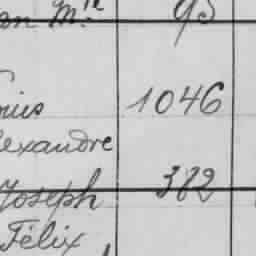 on M.le 95
ouis 1046
lexandre
Joseph 382
Félix